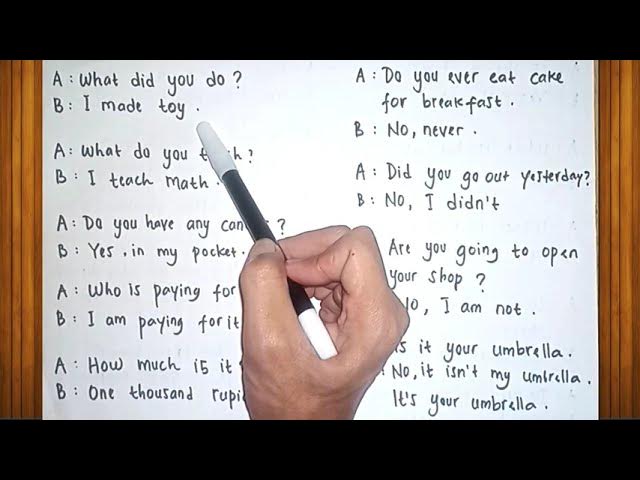 A: What did you do?
B: I made toy.
A: What do you
B: I teach math.
A: Do you have any
B: Yes, in my pocket.
A: Who is paying for
B: I am paying for it
A: How much is it
B: One thousand
A: Do you ever eat cake
for breakfast.
B: No, never.
A: Did you go out yesterday?
B: No, I didn't
Are you going to open
your shop?
No, I am not.
it your umbrella.
No, it isn't my umbrella.
It's your umbrella.